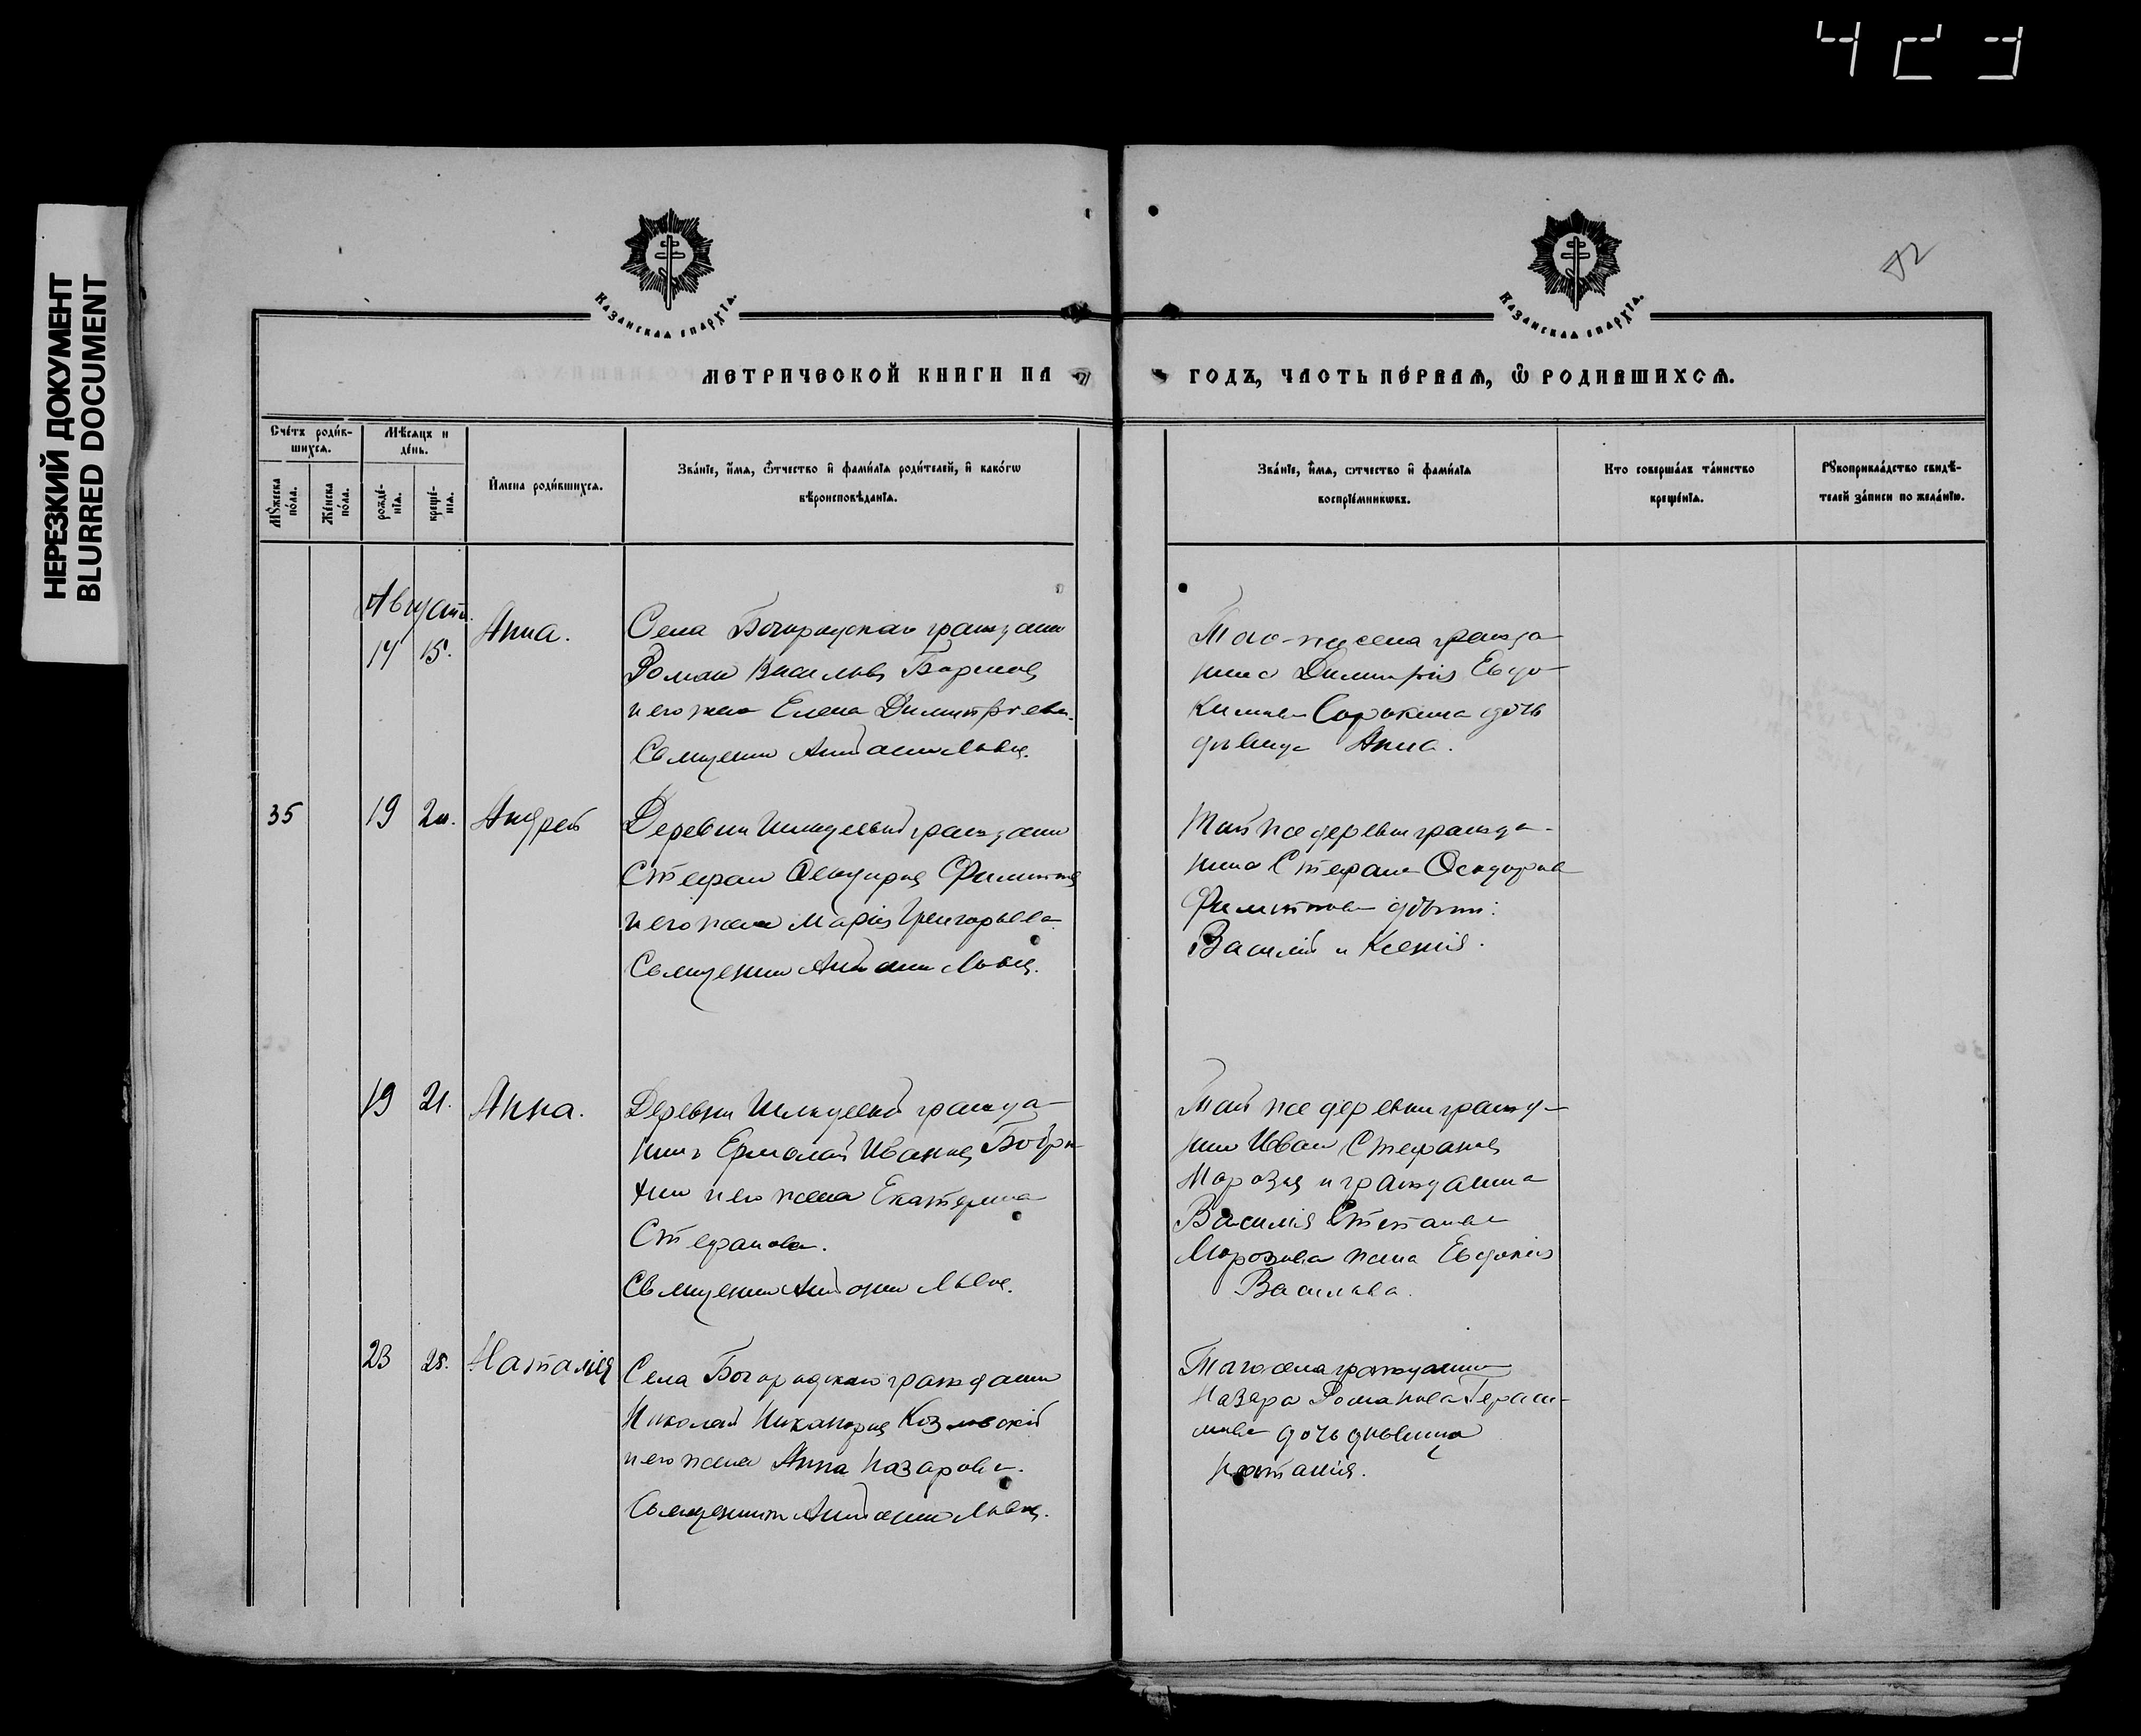 423
НЕРЕЗКИЙ ДОКУМЕНТ
BLURRED DOCUMENT
Казанская епархїа.
Казанская епархїа.
МЕТРИЧЕСКОЙ КНИГИ НА
ГОДЪ, ЧАСТЬ ПЕ́РВАЯ, Ѿ РОДИВШИХСЯ.
Сче́тъ роди́в-
шихся.
Мѣсяцъ и
де́нь.
Мꙋ́жеска
по́ла.
Же́нска
по́ла.
рожде́-
нїя.
креще́-
нїя.
И҆мена роди́вшихся.
Зва́нїе, и҆́мя, ѻ҆́тчество и҆ фами́лїя роди́телей, и҆ како́гѡ
вѣроисповѣ́данїя.
Зва́нїе, и҆́мя, ѻтчество и҆ фами́лїя
воспрїе́мникѡвъ.
Кто соверша́лъ та́инство
креще́нїя.
Рꙋкоприкла́дство свидѣ́-
телей за́писи по жела́нїю.
Августъ.
14 15. Анна.
Села Богородскаго гражданин
Роман Васильев
и его жена Елена Димитріева.
Священник Антоний Львов.
Того-же села гражда-
нина Димитрія Евдо-
кимова Сорокина дочь
дѣвица Анна.
35 19 20. Андрей
Деревни гражданин
Стефан Филиппов
и его жена Марія Григорьева.
Священник Антоний Львов.
Той же деревни гражда-
нина Стефана
Филиппова дѣти:
Василій и Ксенія.
19 21. Анна.
Деревни гражда-
нинъ Ермолай Иванов
и его жена Екатерина
Стефанова.
Священник Антоний Львов.
Той же деревни гражд-
нин Иван Стефанов
Морозов и гражданина
Василія Степанова
Морозова жена Евдокія
Васильева.
23 25. Наталія
Села Богородскаго гражданин
Николай Никаноров Козловскій
и его жена Анна Назарова.
Священник Антоний Львов.
Того села гражданина
Назара Романова Гераси-
мова дочь дѣвица
Наталія.